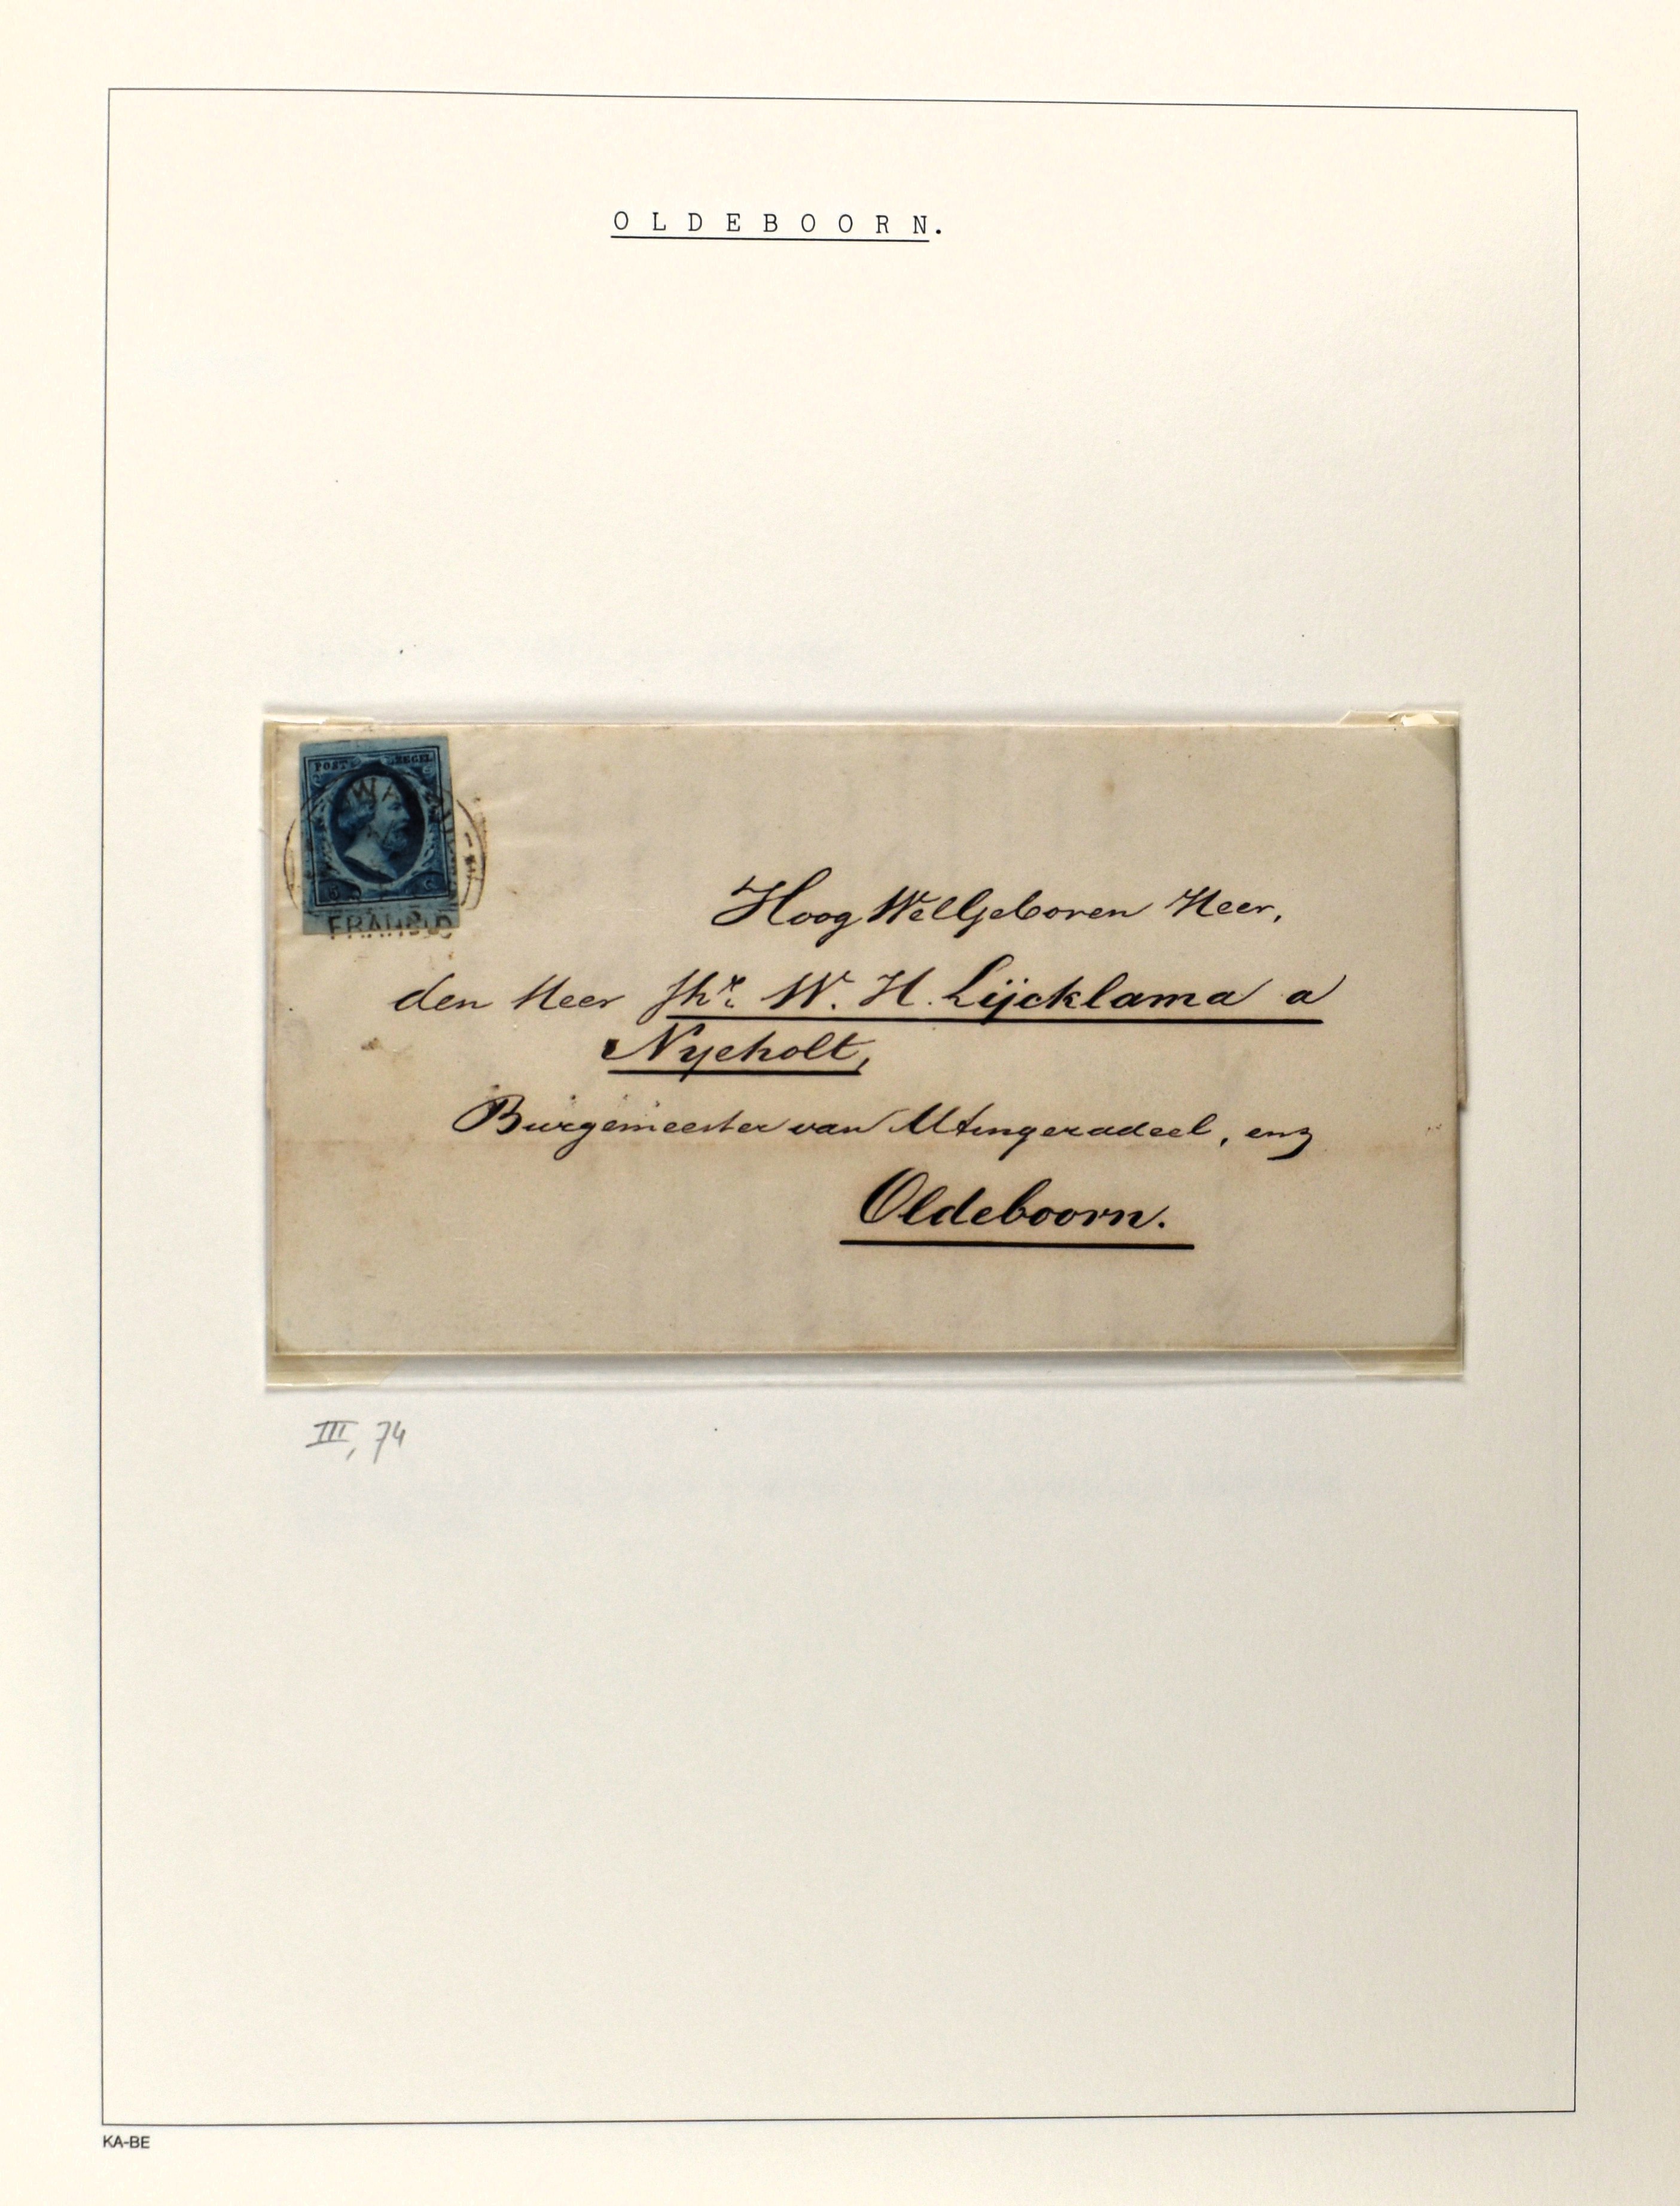 OLDEBOORN.
POST ZEGEL
5 C
FRANCO
Hoog WelGeboren Heer,
den Heer Jhr. W. H. Lijcklama a
Nyeholt,
Burgemeester van Utingeradeel, enz
Oldeboorn.
III, 74
KA-BE